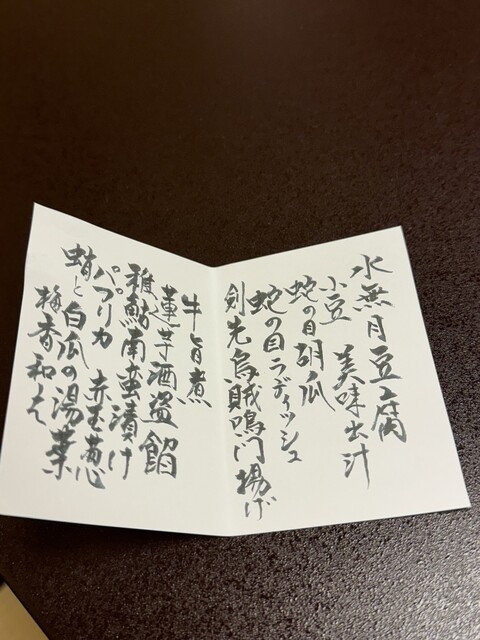 水無月豆腐
小豆 美味出汁
蛇の目胡瓜
蛇の目ラディッシュ
剣先烏賊鳴門揚げ
牛旨煮
蓮芋酒盗餡
稚鮎南蛮漬け
パプリカ 赤玉葱
蛸と白瓜の湯葉
梅香和え